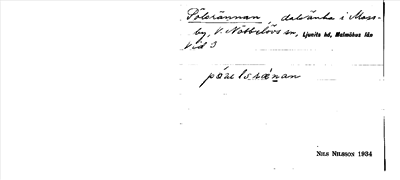 Pölerännan, dalsänka i Moss-
by, V. Nöbbelövs sn, Ljunits hd, Malmöhus län
V d 3
NILS NILSSON 1934